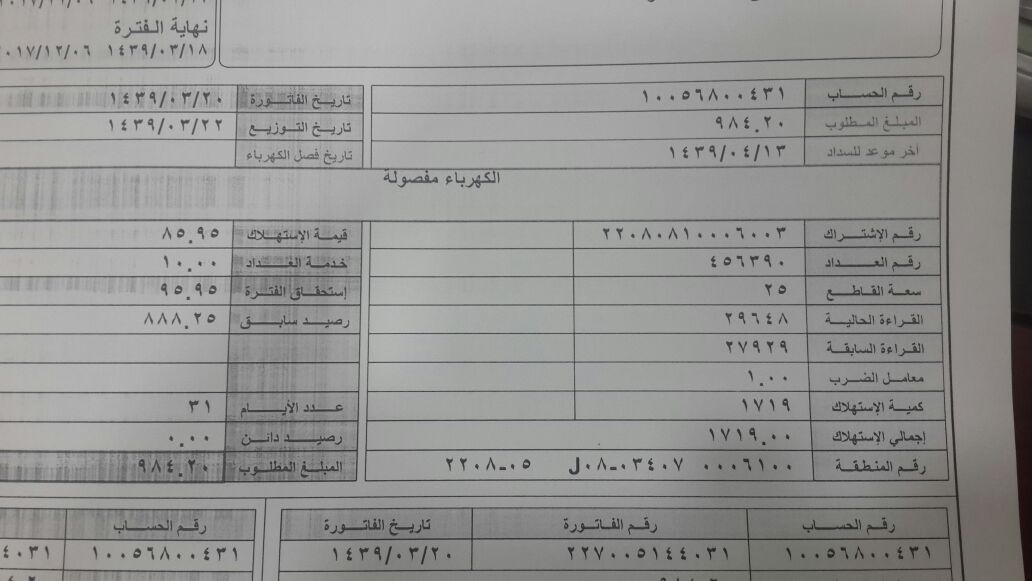 نهاية الفترة
١٤٣٩/٠٣/١٨ ٢٠١٧/١٢/٠٦
رقم الحساب ١٠٠٥٦٨٠٠٤٣١
المبلغ المطلوب ٩٨٤.٢٠
آخر موعد للسداد ١٤٣٩/٠٤/١٣
تاريخ الفاتورة ١٤٣٩/٠٣/٢٠
تاريخ التوزيع ١٤٣٩/٠٣/٢٢
تاريخ فصل الكهرباء
الكهرباء مفصولة
رقم الإشتراك ٢٢٠٨٠٨١٠٠٠٦٠٠٣
رقم العداد ٤٥٦٣٩٠
سعة القاطع ٢٥
القراءة الحالية ٢٩٦٤٨
القراءة السابقة ٢٧٩٢٩
معامل الضرب ١.٠٠
كمية الإستهلاك ١٧١٩
إجمالي الإستهلاك ١٧١٩.٠٠
رقم المنطقة ٠٠٠٦١٠٠ J٠٨-٠٣٤٠٧ ٢٢٠٨-٠٥
قيمة الإستهلاك ٨٥.٩٥
خدمة العداد ١٠.٠٠
إستحقاق الفترة ٩٥.٩٥
رصيد سابق ٨٨٨.٢٥
عدد الأيام ٣١
رصيد دائن ٠.٠٠
المبلغ المطلوب ٩٨٤.٢٠
رقم الحساب رقم الفاتورة تاريخ الفاتورة
١٠٠٥٦٨٠٠٤٣١ ٢٢٧٠٠٥١٤٤٠٣١ ١٤٣٩/٠٣/٢٠
رقم الحساب
١٠٠٥٦٨٠٠٤٣١